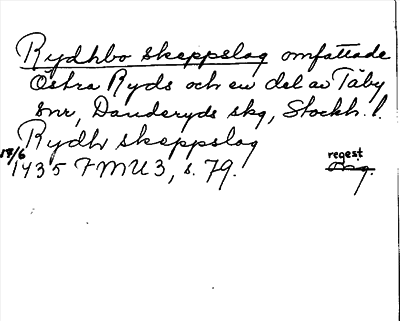 Rydhbo skeppslag omfattade
Östra Ryds och en del av Täby
snr, Danderyds skg, Stockh. l.
Rydh skeppslag
18/6 1435 FMU 3, s. 79. regest
Orig.